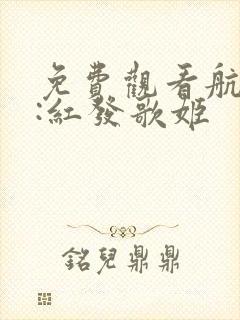 免費觀看航
:紅發歌姬
銘兒鼎鼎